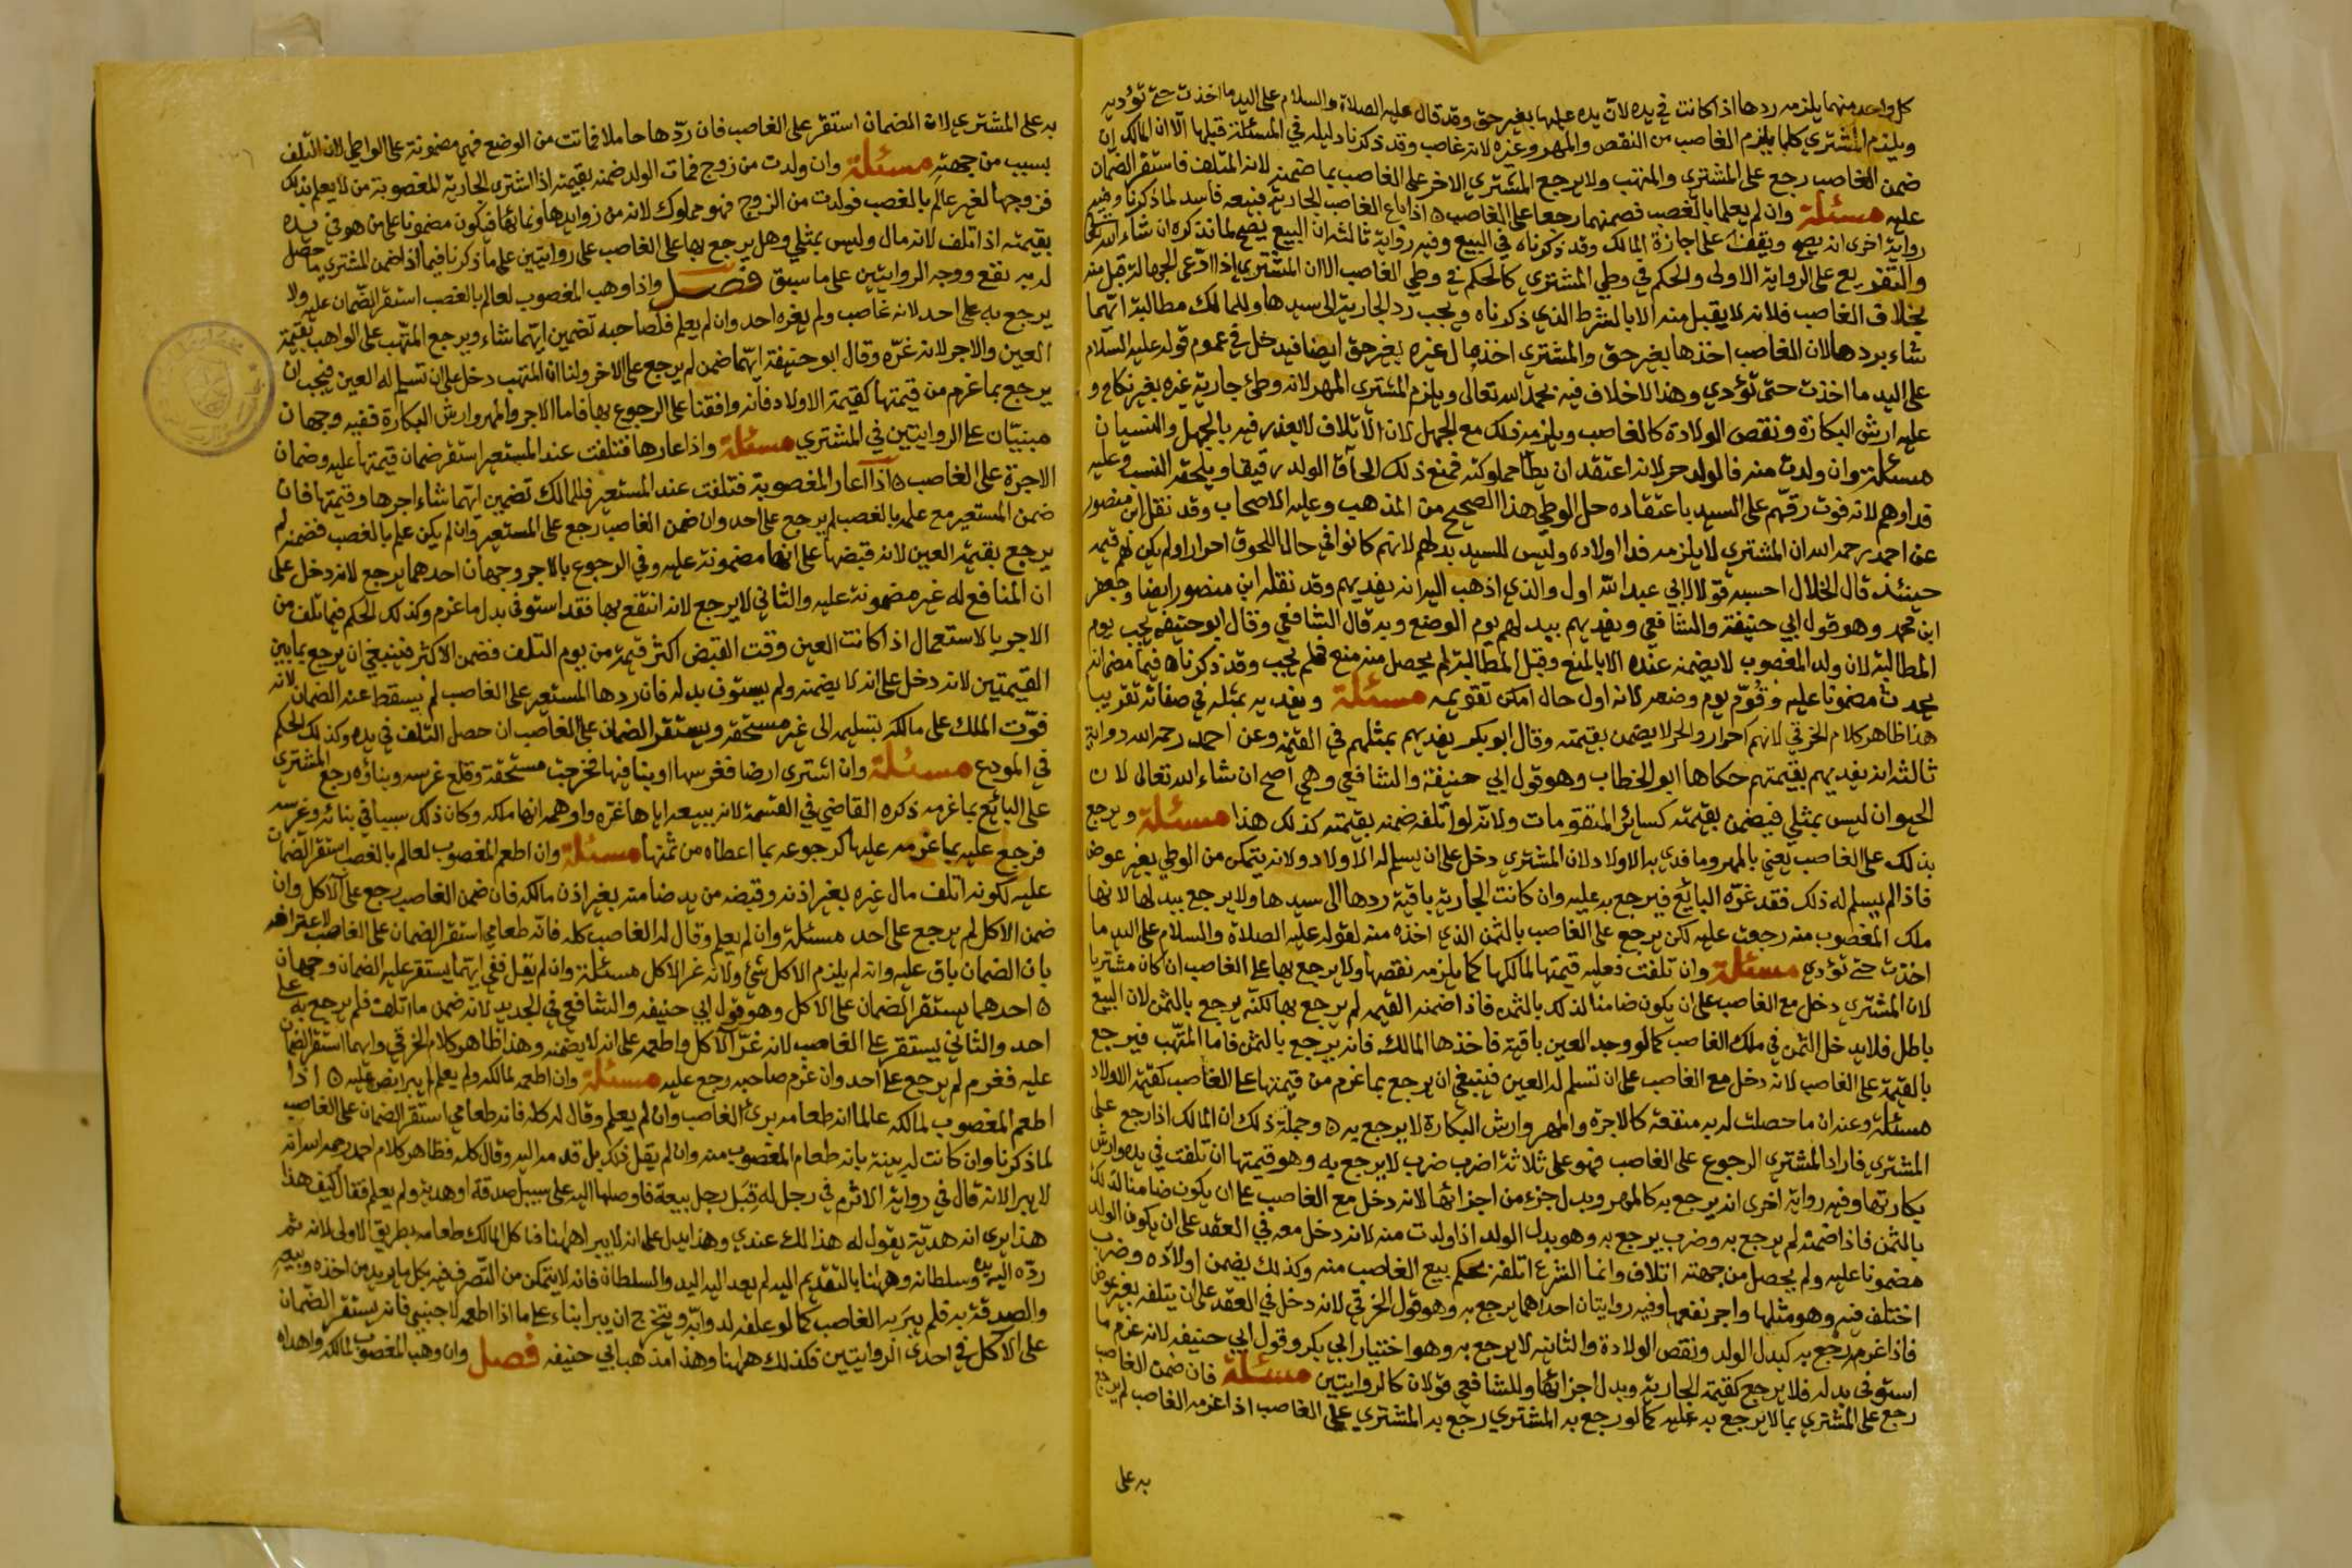 كل واحد منهما يلزمه ردها اذا كانت في يده لان يده عليها بغير حق وقد قال عليه الصلاة والسلام على اليد ما اخذت حتى تؤديه
ويلزم المشتري كلما يلزم الغاصب من النقص والمهر وغيره لانه غاصب وقد ذكرنا دليله في المسئلة قبلها الا ان المالك ان
ضمن الغاصب رجع على المشتري والمتهب ولا يرجع المشتري الاخر على الغاصب بما ضمنه لانه المتلف فاستقر الضمان
عليه مسئلة وان لم يعلما بالغصب فضمنهما رجعا على الغاصب ٥ اذا باع الغاصب الجارية فبيعه فاسد لما ذكرنا وفيه
رواية اخرى انه يصح ويقف على اجازة المالك وقد ذكرناه في البيع وفيه رواية ثالثة ان البيع يصح لما نذكره ان شاء الله تعالى
والتفريع على الرواية الاولى والحكم في وطي المشتري كالحكم في وطي الغاصب الا ان المشتري اذا ادعى الجهالة قبل منه
بخلاف الغاصب فلانه لا يقبل منه الا بالشرط الذي ذكرناه ويجب رد الجارية الى سيدها وللمالك مطالبة ايهما
شاء بردها لان الغاصب اخذها بغير حق والمشتري اخذ مال غيره بغير حق ايضا فيدخل في عموم قوله عليه السلام
على اليد ما اخذت حتى تؤدي وهذا لا خلاف فيه بحمد الله تعالى ويلزم المشتري المهر لانه وطئ جارية غيره بغير نكاح و
عليه ارش البكارة ونقص الولادة كالغاصب ويلزمه ذلك مع الجهل لان الاتلاف لا يعذر فيه بالجهل والنسيان
مسئلة وان ولدت منه فالولد حر لانه اعتقد ان يطأ مملوكته فمنع ذلك الحاق الولد رقيقا ويلحقه النسب وعليه
فداوهم لانه فوت رقهم على السيد باعتقاده حل الوطي هذا الصحيح من المذهب وعليه الاصحاب وقد نقل ابن منصور
عن احمد رحمه الله ان المشتري لا يلزمه فدا اولاده وليس للسيد بدلهم لانهم كانوا في حال اللحوق احرارا ولم يكن لهم قيمه
حينئذ قال الخلال احسبه قولا لابي عبد الله اول والذي اذهب اليه انه يفديهم وقد نقله ابن منصور ايضا وجعفر
ابن محمد وهو قول ابي حنيفة والشافعي ويفديهم ببدلهم يوم الوضع وبه قال الشافعي وقال ابو حنيفه يجب يوم
المطالبة لان ولد المغصوب لا يضمنه عنده الا بالمنع وقبل المطالبة لم يحصل منه منع فلم يجب وقد ذكرنا فيما مضى انه
يحدث مضمونا عليه وقوم يوم وضعه لانه اول حال امكن تقويمه مسئلة ويفديه بمثله في صفاته تقريبا
هذا ظاهر كلام الخرقي لانهم احرار والحر لا يضمن بقيمته وقال ابو بكر يفديهم بمثلهم في القيمة وعن احمد رحمه الله رواية
ثالثة انه يفديهم بقيمتهم حكاها ابو الخطاب وهو قول ابي حنيفة والشافعي وهي اصح ان شاء الله تعالى لان
الحيوان ليس بمثلي فيضمن بقيمته كسائر المتقومات ولانه لو اتلفه ضمنه بقيمته كذلك هذا مسئلة ويرجع
بذلك على الغاصب يعني بالمهر وما فدي به الاولاد لان المشتري دخل على ان يسلم له الاولاد ولانه يتمكن من الوطي بغير عوض
فاذا لم يسلم له ذلك فقد غره البايع فيرجع به عليه وان كانت الجارية باقية ردها الى سيدها ولا يرجع ببدلها لانها
ملك المغصوب منه رجعت عليه لكن يرجع على الغاصب بالثمن الذي اخذه منه لقوله عليه الصلاة والسلام على اليد ما
اخذت حتى تؤدي مسئلة وان تلفت فعليه قيمتها لمالكها كما يلزمه نقصها ولا يرجع بها على الغاصب ان كان مشتريا
لان المشتري دخل مع الغاصب على ان يكون ضامنا لذلك بالثمن فاذا ضمنه القيمه لم يرجع بها لكنه يرجع بالثمن لان البيع
باطل فلا يدخل الثمن في ملك الغاصب كما لو وجد العين باقية فاخذها المالك فانه يرجع بالثمن فاما المتهب فيرجع
بالقيمة على الغاصب لانه دخل مع الغاصب على ان تسلم له العين فينبغي ان يرجع بما غرم من قيمتها على الغاصب كقيمة الاولاد
مسئلة وعنه ان ما حصلت له به منفعة كالاجرة والمهر وارش البكارة لا يرجع به ٥ وجملة ذلك ان المالك اذا رجع على
المشتري فاراد المشتري الرجوع على الغاصب فهو على ثلاثة اضرب ضرب لا يرجع به وهو قيمتها ان تلفت في يده وارش
بكارتها وفيه رواية اخرى انه يرجع به كالمهر وبدل جزء من اجزائها لانه دخل مع الغاصب على ان يكون ضامنا لذلك
بالثمن فاذا ضمنه لم يرجع به وضرب يرجع به وهو بدل الولد اذا ولدت منه لانه دخل معه في العقد على ان يكون الولد
مضمونا عليه ولم يحصل من جهته اتلاف وانما الشرع اتلفه بحكم بيع الغاصب منه وكذلك يضمن اولاده وضرب
اختلف فيه وهو مثلها واجر نفعها وفيه روايتان احداهما يرجع به وهو قول الخرقي لانه دخل في العقد على ان يتلفه بغير عوض
فاذا غرمه رجع به كبدل الولد ونقص الولادة والثانيه لا يرجع به وهو اختيار ابي بكر وقول ابي حنيفه لانه غرم ما
استوفى بدله فلا يرجع كقيمة الجارية وبدل اجزائها وللشافعي قولان كالروايتين مسئلة فان ضمن الغاصب
رجع على المشتري بما لا يرجع به عليه كما لو رجع به المشتري رجع به المشتري على الغاصب اذا غرمه الغاصب لم يرجع
به على
به على المشتري لان الضمان استقر على الغاصب فان ردها حاملا فماتت من الوضع فهي مضمونة على الواطي لان التلف
بسبب من جهته مسئلة وان ولدت من زوج فمات الولد ضمنه بقيمته اذا اشترى الجارية المغصوبة من لا يعلم بذلك
فزوجها لغير عالم بالغصب فولدت من الزوج فهو مملوك لانه من زوايدها ونمائها فيكون مضمونا على من هو في يده
بقيمته اذا تلف لانه مال وليس بمثلي وهل يرجع بها على الغاصب على روايتين على ما ذكرنا فيما اذا ضمن المشتري ما حصل
له به نفع ووجه الروايتين على ما سبق فصل واذا وهب المغصوب لعالم بالغصب استقر الضمان عليه ولا
يرجع به على احد لانه غاصب ولم يغره احد وان لم يعلم فلصاحبه تضمين ايهما شاء ويرجع المتهب على الواهب بقيمة
العين والاجر لانه غره وقال ابو حنيفة ايهما ضمن لم يرجع على الاخر ولنا ان المتهب دخل على ان تسلم له العين فيجب ان
يرجع بما غرم من قيمتها كقيمة الاولاد فانه وافقنا على الرجوع بها فاما الاجر والمهر وارش البكارة ففيه وجهان
مبنيان على الروايتين في المشتري مسئلة واذا عارها فتلفت عند المستعير استقر ضمان قيمتها عليه وضمان
الاجرة على الغاصب ٥ اذا اعار المغصوبة فتلفت عند المستعير فللمالك تضمين ايهما شاء اجرها وقيمتها فان
ضمن المستعير مع علمه بالغصب لم يرجع على احد وان ضمن الغاصب رجع على المستعير وان لم يكن علم بالغصب فضمنه لم
يرجع بقيمة العين لانه قبضها على انها مضمونة عليه وفي الرجوع بالاجر وجهان احدهما يرجع لانه دخل على
ان المنافع له غير مضمونة عليه والثاني لا يرجع لانه انتفع بها فقد استوفى بدل ما غرم وكذلك الحكم فيما تلف من
الاجر بالاستعمال اذا كانت العين وقت القبض اكثر قيمة من يوم التلف فضمن الاكثر فينبغي ان يرجع بما بين
القيمتين لانه دخل على انه لا يضمنه ولم يستوف بدله فان ردها المستعير على الغاصب لم يسقط عنه الضمان لانه
فوت الملك على مالكه بتسليمه الى غير مستحقه ويستقر الضمان على الغاصب ان حصل التلف في يده وكذلك الحكم
في المودع مسئلة وان اشترى ارضا فغرسها او بنا فيها فخرجت مستحقة وقلع غرسه وبناؤه رجع المشتري
على البائع بما غرمه ذكره القاضي في القسمة لانه ببيعه اياها غره واوهمه انها ملكه وكان ذلك سببا في بنائه وغرسه
فرجع عليه بما غرمه عليها كرجوعه بما اعطاه من ثمنها مسئلة وان اطعم المغصوب لعالم بالغصب استقر الضمان
عليه لكونه اتلف مال غيره بغير اذنه وقبضه من يد ضامنه بغير اذن مالكه فان ضمن الغاصب رجع على الاكل وان
ضمن الاكل لم يرجع على احد مسئلة وان لم يعلم وقال له الغاصب كله فانه طعامي استقر الضمان على الغاصب لاعترافه
بان الضمان باق عليه وانه لم يلزم الاكل شئ ولانه غر الاكل مسئلة وان لم يقل ففي ايهما يستقر عليه الضمان وجهان
٥ احدهما يستقر الضمان على الاكل وهو قول ابي حنيفه والشافعي في الجديد لانه ضمن ما اتلف فلم يرجع به على
احد والثاني يستقر على الغاصب لانه غر الاكل واطعمه على انه لا يضمنه وهذا ظاهر كلام الخرقي وايهما استقر الضمان
عليه فغرم لم يرجع على احد وان غرم صاحبه رجع عليه مسئلة وان اطعمه لمالكه ولم يعلم لم يبرا نص عليه ٥ اذا
اطعم المغصوب لمالكه عالما انه طعامه برئ الغاصب وان لم يعلم وقال له كله فانه طعامي استقر الضمان على الغاصب
لما ذكرنا وان كانت له بينة بانه طعام المغصوب منه وان لم يقل ذلك بل قدمه اليه وقال كله فظاهر كلام احمد رحمه الله انه
لا يبرا لانه قال في رواية الاثرم في رجل له قبل رجل بيعة فاوصلها اليه على سبيل صدقة او هدية ولم يعلم فقال كيف هذا
هذا يرى انه هدية يقول له هذا لك عندي وهذا يدل على انه لا يبرا ههنا فاكل المالك طعامه بطريق الاولى لانه ثم
رده اليه يده وسلطانه وههنا بالتقديم اليه لم يعد اليه اليد والسلطان فانه لا يتمكن من التصرف فيه بكل ما يريد من اخذه وبيعه
والصدقة به فلم يبر به الغاصب كما لو علفه لدوابه ويتخرج ان يبرا بناء على ما اذا اطعمه لاجنبي فانه يستقر الضمان
على الاكل في احدى الروايتين فكذلك ههنا وهذا مذهب ابي حنيفه فصل وان وهب المغصوب لمالكه واهداه